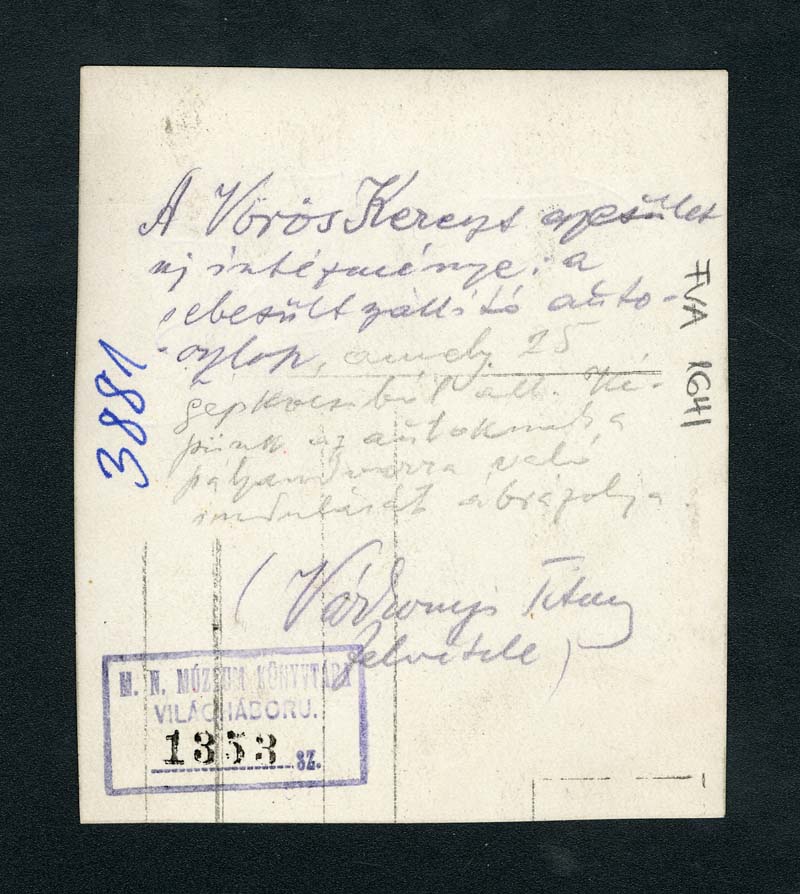 A Vörös Kereszt egyesület
uj intézménye: a
sebesült szállító auto-
-oszlop, amely 25
gépkocsiból áll. Ké-
pünk az autoknak a
pályaudvarra való
indulását ábrázolja.
(Várkonyi Titusz
felvétele)
3881
FVA 1641
M. N. MÚZEUM KÖNYVTÁRA
VILÁGHÁBORU.
1353 SZ.